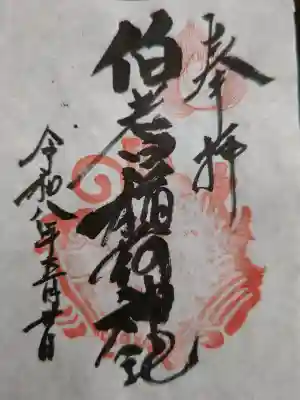 奉拝
伯耆稲荷神社
令和八年五月廿日